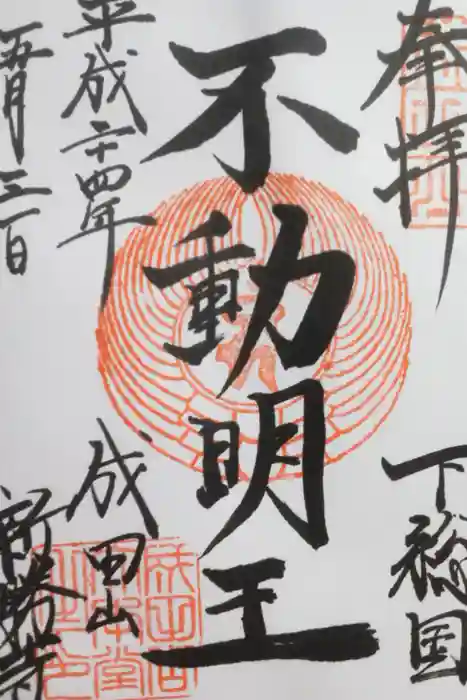 奉拝
下総国
不動明王
平成二十四年
成田山
五月三日
新勝寺